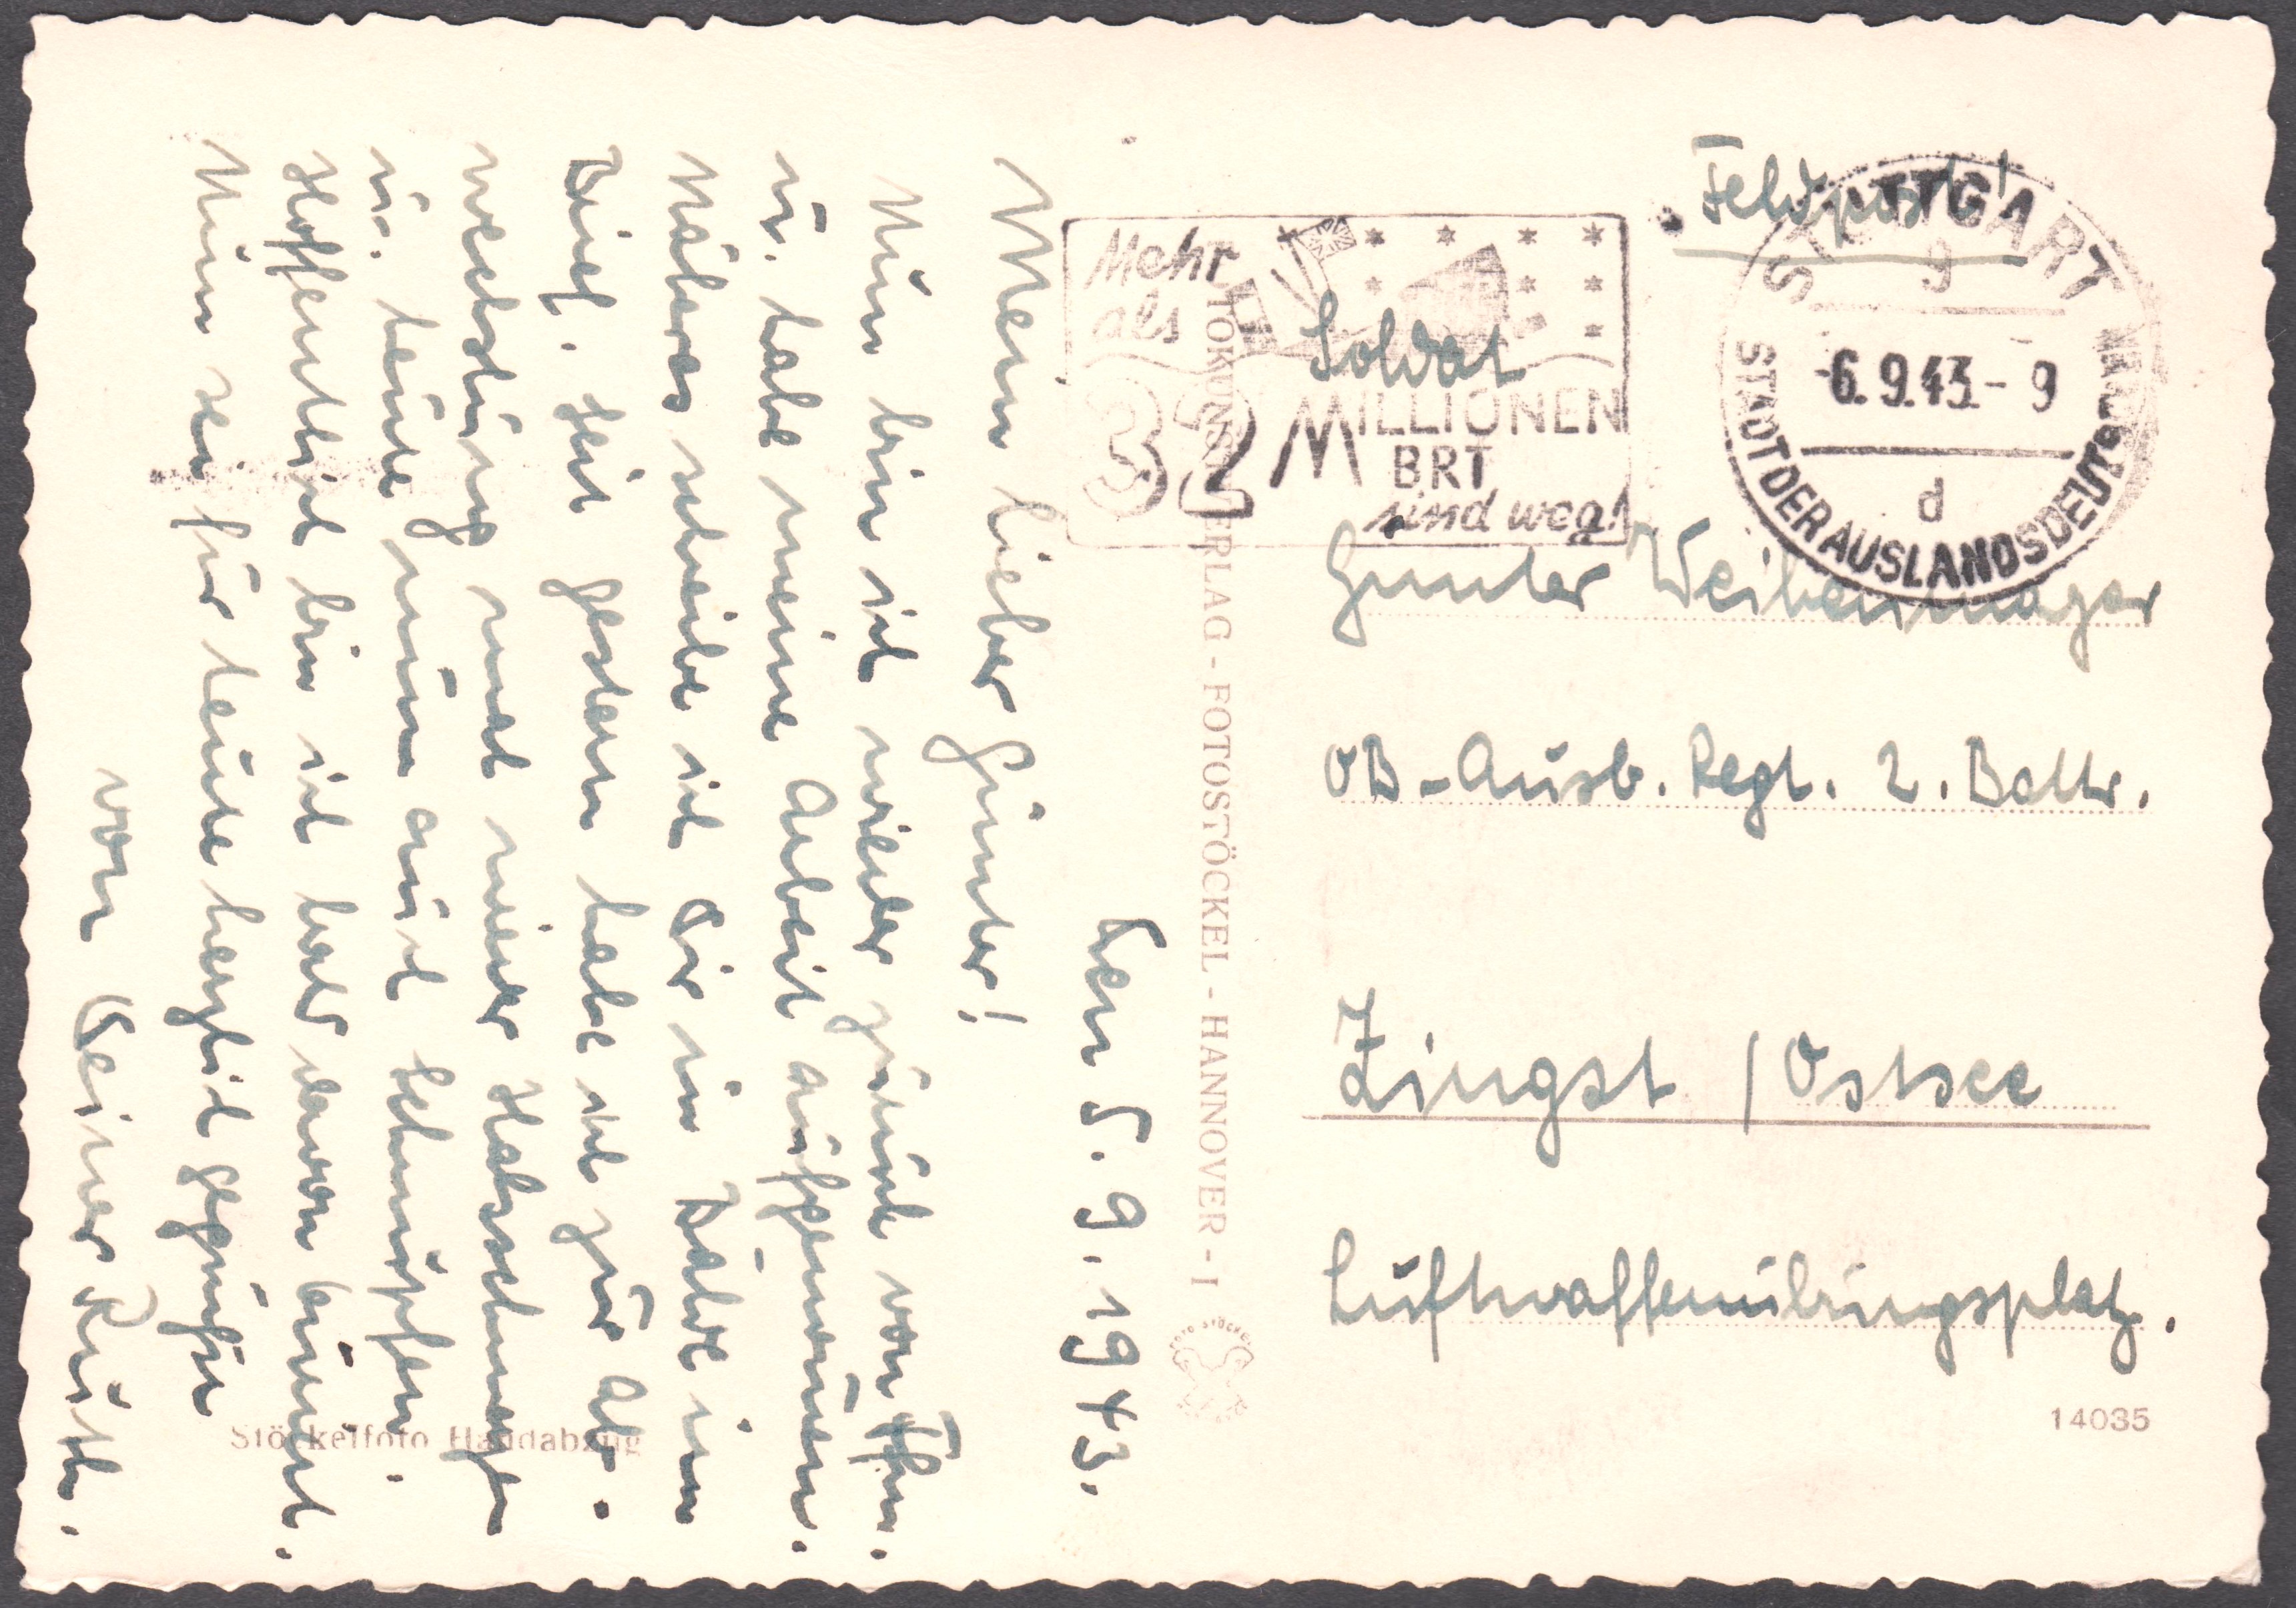 Feldpost!
STUTTGART
g
-6.9.43.-9
d
STADT DER AUSLANDSDEUTSCHEN
Mehr
als
32 MILLIONEN
BRT
sind weg!
Soldat
Günter Weihenmager
OB-Ausb. Regt. 2. Battr.
Zingst / Ostsee
Luftwaffenübungsplatz.
14035
FOTOKUNSTVERLAG - FOTOSTÖCKEL - HANNOVER - I
FOTO STÖCKEL
Den 5. 9. 1943.
Mein lieber Günter!
Nun bin ich wieder zurück von
u. habe meine Arbeit aufgenommen.
Näheres schreibe ich Dir in Bälde im
Brief. Seit gestern habe ich zur Ab-
wechslung mal wieder Halsschmerzen
u. heute nun auch Schnupfen.
Hoffentlich bin ich bald davon
Nun sei für heute herzlich gegrüßt
von Deiner Ruth.
Stöckelfoto Handabzug